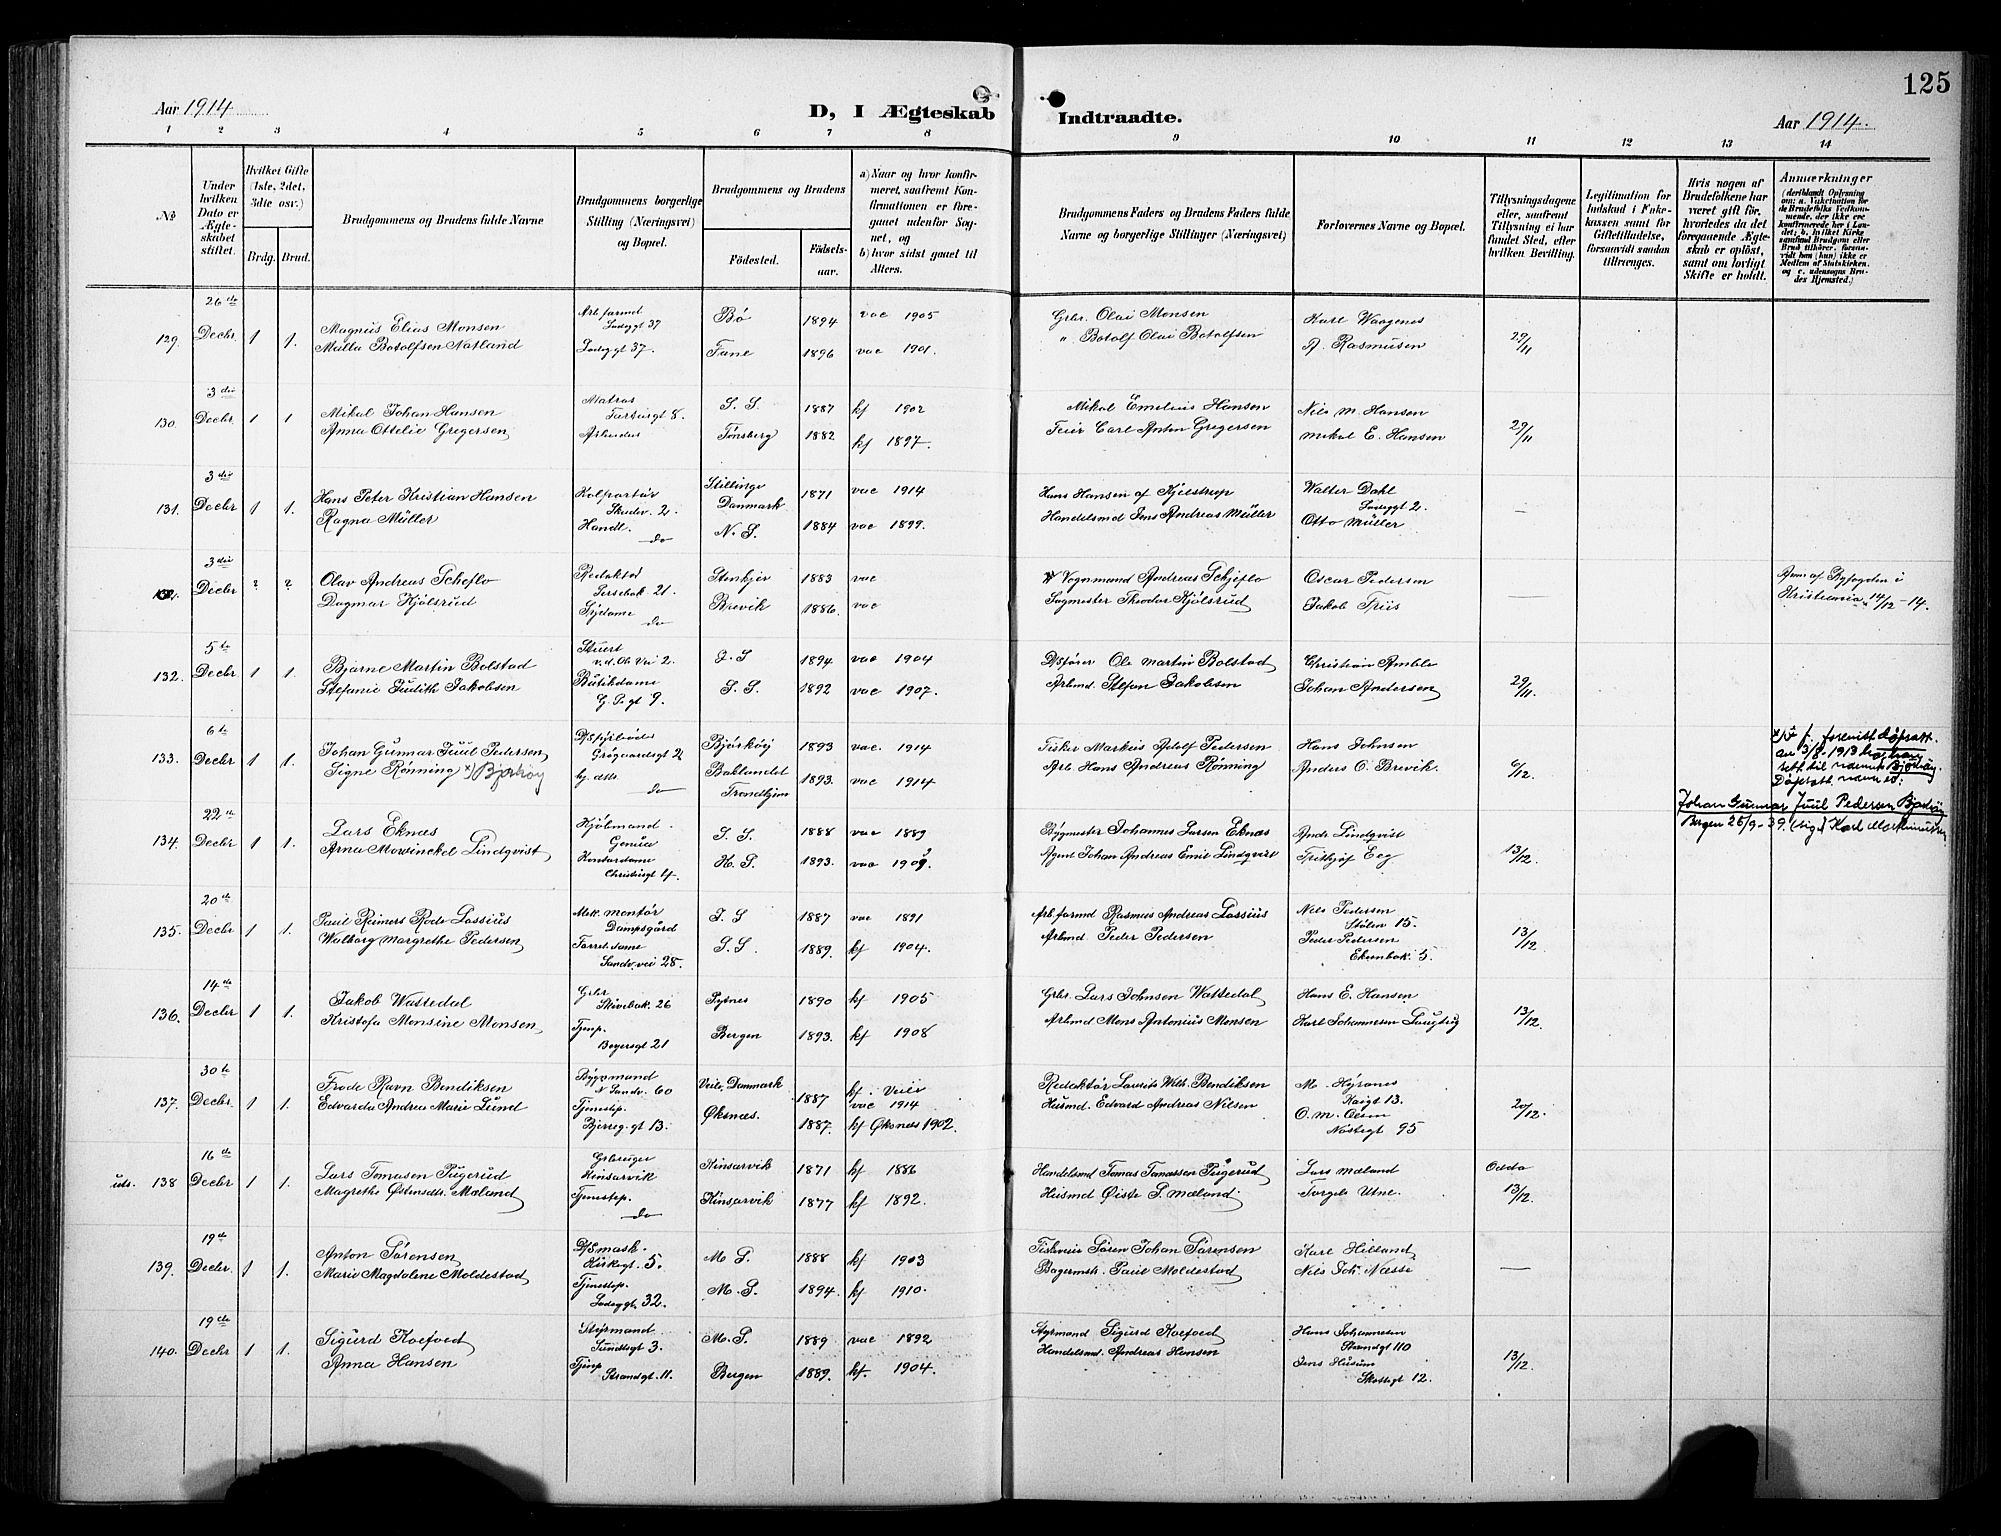 125
Aar 1914
D, I Ægteskab Indtraadte.
Aar 1914.
1 2 3 4 5 6 7 8 9 10 11 12 13 14
No
Under hvilken Dato er Ægteskabet stiftet.
Hvilket Gifte (1ste, 2det, 3die osv.)
Brdg. Brud.
Brudgommens og Brudens fulde Navne
Brudgommens borgerlige Stilling (Næringsvei) og Bopæl.
Brudgommens og Brudens
Födested. Födselsaar.
a) Naar og hvor konfirmeret, saafremt Konfirmationen er foregaaet udenfor Sognet, og
b) hvor sidst gaaet til Alters.
Brudgommens Faders og Brudens Faders fulde Navne og borgerlige Stillinger (Næringsvei)
Forlovernes Navne og Bopæl.
Tillysningsdagene eller, saafremt Tillysning ei har fundet Sted, efter hvilken Bevilling.
Legitimation for Indskud i Enkekassen samt for Giftetilladelse, forsaavidt saadan tiltrænges.
Hvis nogen af Brudefolkene har været gift för, hvorledes da det foregaaende Ægteskab er oplöst, samt om lovligt Skifte er holdt.
Anmærkninger
26de Decbr
129. 1 1. Magnus Elias Monsen Arb. formd Ladeggt 37 Bö 1894 vac 1905 Grbr. Olai Monsen Karl Waagenes
Malla Botolfsen Natland Ladeggt 37. Fane 1896 vac 1901. " Botolf Olai Botolfsen A. Rasmusen 29/11
3die Decbr
130. 1 1 Mikal Johan Hansen Matros 8. S. S. 1887 kf 1902 Mikal Emilius Hansen Nils M. Hansen
Anna Ottelie Gregersen Arbeider Tønsberg 1882 kf 1897. Feier Carl Anton Gregersen Mikal E. Hansen 29/11
3die Decbr
131. 1 1. Hans Peter Kristian Hansen Kolportör Skudev. 2. Stillinge Danmark 1871 vac 1914 Hans Hansen af Kjelstrup Walter Dahl Ladeggt 2.
Ragna Müller Handl. do N. S. 1884 vac 1899. Handelsmd Jens Andreas Müller Otto Müller —
3die Decbr
? ? Olav Andreas Scheflo Redaktör 21. Stenkjer 1883 vac Vognmand Andreas Schjeflo Oscar Pedersen
Dagmar Kjölsrud Sydame do Brevik 1886. vac Sagmester Theodor Kjölsrud Jakob Friis —
Anm. af Byfogden i Christiania 14/12-14.
5te Decbr
132. 1 1. Bjarne Martin Bolstad Stuert v. d. Ole Vei 2. J. S 1894 vac 1904 D/Sförer Ole Martin Bolstad Christian Amble
Stefanie Judith Jakobsen Butikdame G. P. gt 9. S. S. 1892 vac 1907. Arbmd. Stefan Jakobsen Johan Andersen 29/11.
6te Decbr
133. 1 1. Johan Gunnar Juul Pedersen Bjarköy 1893 vac 1914 Fisker Markus Adolf Pedersen Hans Johnsen
Signe Rønning x) Bjarköy do Baklandet Trondhjem 1893. vac 1914 Arb. Hans Andreas Rønning Anders O. Brevik. 6/12.
an 3/8. 1913
Johan Gunnar Juul Pedersen Bjarköy
Bergen 26/9-39. (sign)
22de Decbr
134. 1 1. Lars Eknæs Kjöbmand Genua S. S. 1888 vac 1889 Bygmester Johannes Larsen Eknæs Andr. Lindqvist
Arna Mowinckel Lindqvist Kontordame Christiesgt 14. H. S. 1893. vac 1909 Agent Johan Andreas Emil Lindqvist Fritjof Eeg 13/12.
20de Decbr
135. 1 1. Paul Reimers Rode Lossius Mek. montör Damsgård J. S 1887 vac 1891 Arb. formd Rasmus Andreas Lossius Nils Pedersen Stölen 15.
Walborg Margrethe Pedersen Forret. dame Sandv. vei 28. S. S 1889. kf 1904. Arbmd Peder Pedersen Peder Pedersen 5. 13/12.
14de Decbr
136. 1 1. Jakob Wattedal Grbr 26 1890 kf 1905 Grbr. Lars Johnsen Wattedal Hans E. Hansen
Kristofa Monsine Monsen Tjenp. Beyersgt 21 Bergen 1893. kf 1908 Arbmd Mons Antonius Monsen Karl Johannesen 13/12.
30te Decbr
137. 1 1. Frode Ravn Bendiksen Bygmand N Sandv. 60 Veile, Danmark 1887 kf. Veile vac 1914 Redaktör Laurits Wilh. Bendiksen M. Höyanes 13.
Edvarda Andrea Marie Lund Tjenestep. Bjerreg. gt 13. Øksnes. 1887. kf Øksnes 1902. Husmd. Edvard Andreas Nilsen O. M. Nöstegt 95 20/12.
16de Decbr
uds. 138 1 1. Lars Tomasen Pugerud Grbruger Kinsarvik Kinsarvik 1871 kf 1886 Handelsmd Tomas Tomassen Pugerud Lars Mæland Odda
Magrethe Østensdtr. Mæland Tjenestep. do Kinsarvik 1877 kf 1892. Husmd Øiste P. Mæland. Torgils Utne. 13/12.
19de Decbr.
139. 1 1. Anton Sörensen D/S mask. Kirkegt. 5. M. S. 1888 kf 1903 Sören Johan Sörensen Karl Hilland
Marie Magdalene Moldestad Tjenestep. Ladeggt. 32. M. S. 1894. kf 1910. Bagermstr. Paul Moldestad Nils Joh. Næsse —
19de Decbr
140. 1 1. Sigurd Koefoed Styrmand Sundtsgt 3. M. S. 1889 vac 1892 Styrmand Sigurd Koefoed Hans Johannesen Strandgt 110
Anna Hansen Tjenp Strandgt. 11. Bergen 1889. kf. 1904. Handelsmd. Andreas Hansen Jens Husum Skottegt 12. 13/12.